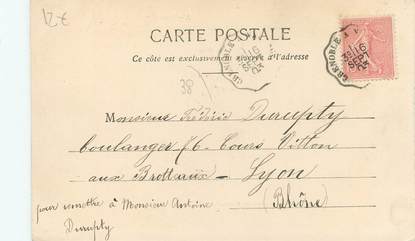 12 €
CARTE POSTALE
Ce côté est exclusivement réservé à l'adresse
GRENOBLE A
16
SEPT
GRENOBLE
16
38
Monsieur Frédéric Durupty
boulanger 76. Cours Vitton
aux Brotteaux - Lyon
(Rhône)
pour remettre à Monsieur Antoine
Durupty